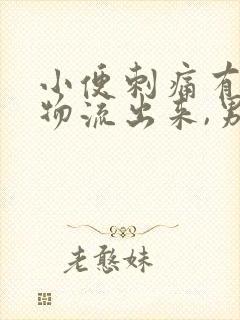 小便刺痛有
物流出来,男
老憨妹